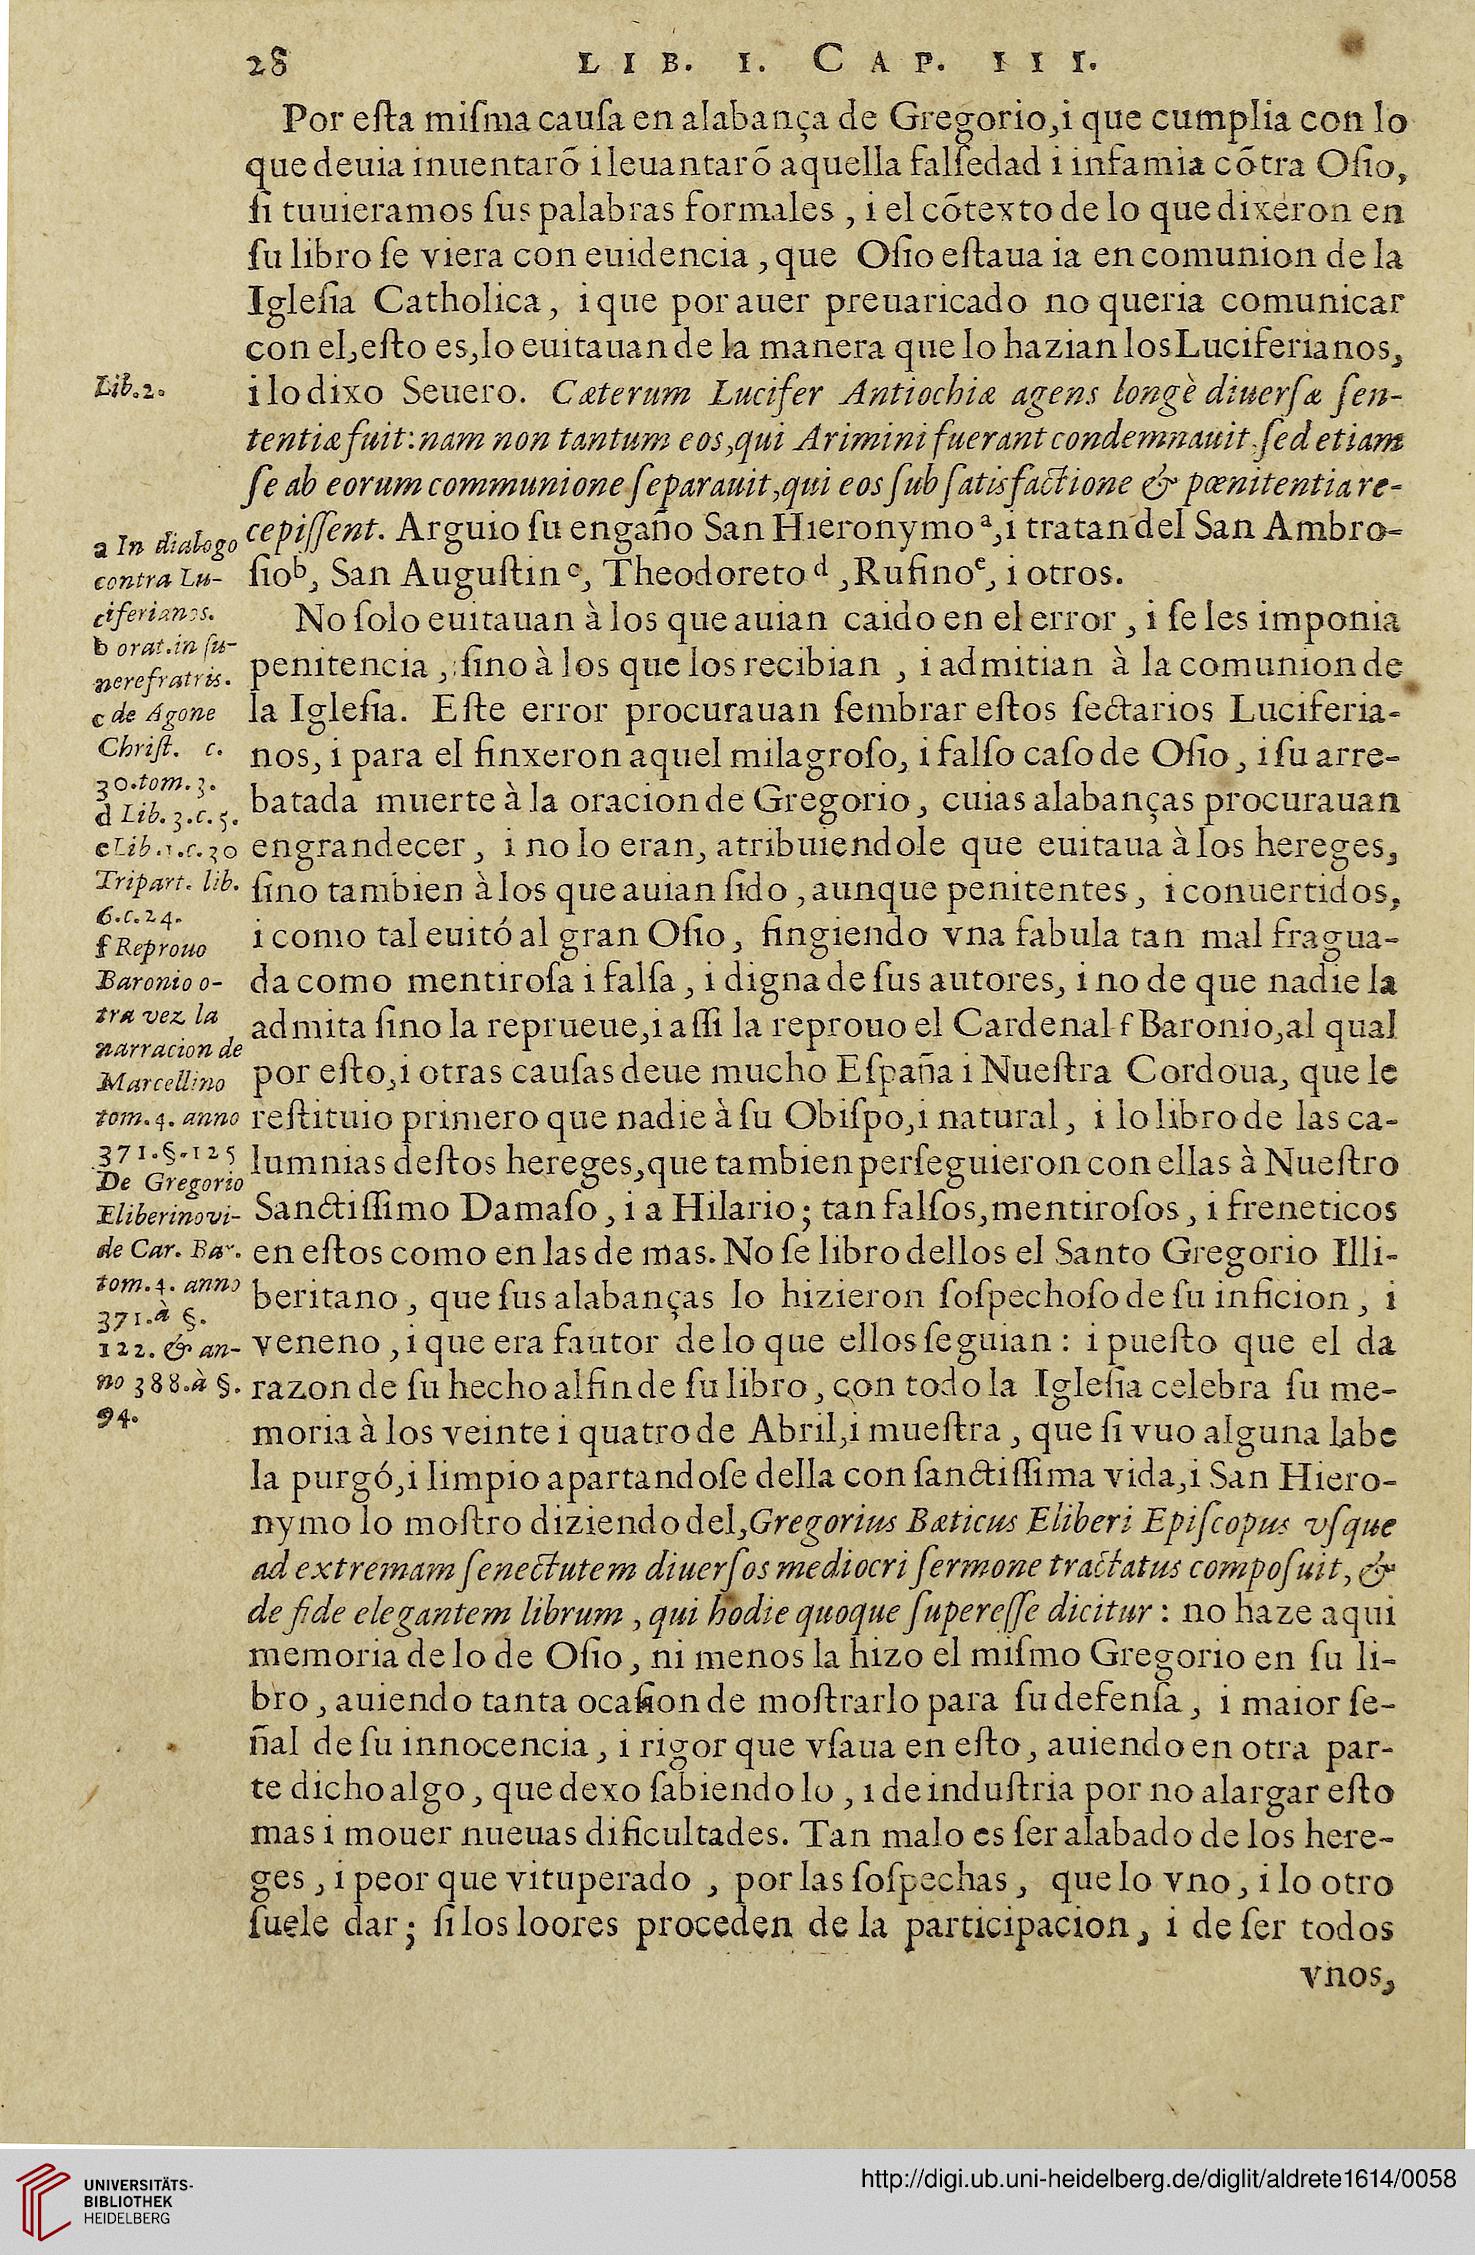 28 LIB. I. CAP. III.
Por eſta miſma cauſa en alabança de Gregorio,i que cumplia con lo
que deuia inuentarõ i leuantarõ aquella falſedad i infamia cõtra Oſio,
ſi tuuieramos ſus palabras formales , i el cõtexto de lo que dixeron en
ſu libro ſe viera con euidencia , que Oſio eſtaua ia en comunion de la
Igleſia Catholica, i que por auer preuaricado no queria comunicar
con el,eſto es,lo euitauan de la manera que lo hazian los Luciferianos,
i lo dixo Seuero. Cæterum Lucifer Antiochiæ agens longè diuerſæ ſen-
tentiæ fuit: nam non tantum eos,qui Arimini fuerant condemnauit ſed etiam
ſe ab eorum communione ſeparauit,qui eos ſub ſatisfactione & pœnitentia re-
cepiſſent. Arguio ſu engaño San Hieronymo a,i tratan del San Ambro-
ſio b, San Auguſtin c, Theodoreto d ,Rufino e, i otros.
No ſolo euitauan à los que auian caido en el error , i ſe les imponia
penitencia , ſino à los que los recibian , i admitian à la comunion de
la Igleſia. Eſte error procurauan ſembrar eſtos ſectarios Luciferia-
nos, i para el finxeron aquel milagroſo, i falſo caſo de Oſio , i ſu arre-
batada muerte à la oracion de Gregorio , cuias alabanças procurauan
engrandecer , i no lo eran, atribuiendole que euitaua à los hereges,
ſino tambien à los que auian ſido , aunque penitentes , i conuertidos,
i como tal euitó al gran Oſio , fingiendo vna fabula tan mal fragua-
da como mentiroſa i falſa , i digna de ſus autores, i no de que nadie la
admita ſino la reprueue,i aſſi la reprouo el Cardenal f Baronio,al qual
por eſto,i otras cauſas deue mucho Eſpaña i Nueſtra Cordoua, que le
reſtituio primero que nadie à ſu Obiſpo,i natural , i lo libro de las ca-
lumnias deſtos hereges,que tambien perſeguieron con ellas à Nueſtro
Sanctiſſimo Damaſo , i a Hilario ; tan falſos,mentiroſos , i freneticos
en eſtos como en las de mas. No ſe libro dellos el Santo Gregorio Illi-
beritano , que ſus alabanças lo hizieron ſoſpechoſo de ſu inficion , i
veneno , i que era fautor de lo que ellos ſeguian : i pueſto que el da
razon de ſu hecho al fin de ſu libro , con todo la Igleſia celebra ſu me-
moria à los veinte i quatro de Abril,i mueſtra , que ſi vuo alguna labe
la purgó,i limpio apartandoſe della con ſanctiſſima vida,i San Hiero-
nymo lo moſtro diziendo del,Gregorius Bæticus Eliberi Epiſcopus vſque
ad extremam ſenectutem diuerſos mediocri ſermone tractatus compoſuit, &
de fide elegantem librum , qui hodie quoque ſupereſſe dicitur : no haze aqui
memoria de lo de Oſio , ni menos la hizo el miſmo Gregorio en ſu li-
bro , auiendo tanta ocaſion de moſtrarlo para ſu defenſa , i maior ſe-
ñal de ſu innocencia , i rigor que vſaua en eſto , auiendo en otra par-
te dicho algo , que dexo ſabiendolo , i de induſtria por no alargar eſto
mas i mouer nueuas dificultades. Tan malo es ſer alabado de los here-
ges , i peor que vituperado , por las ſoſpechas , que lo vno , i lo otro
ſuele dar ; ſi los loores proceden de la participacion , i de ſer todos
vnos,
Lib.2.
a In dialogo
contra Lu-
ciferianos.
b orat.in fu-
nere fratris.
c de Agone
Chriſt. c.
30.tom.3.
d Lib.3.c.5.
e Lib.1.c.30
Tripart. lib.
6.c.24.
f Reprouo
Baronio o-
tra vez la
narracion de
Marcellino
tom.4. anno
371.§.125
De Gregorio
Eliberino vi-
de Car. Bar.
tom.4. anno
371.à §.
122. & an-
no 388.à §.
94.
UNIVERSITÄTS-
BIBLIOTHEK
HEIDELBERG
http://digi.ub.uni-heidelberg.de/diglit/aldrete1614/0058